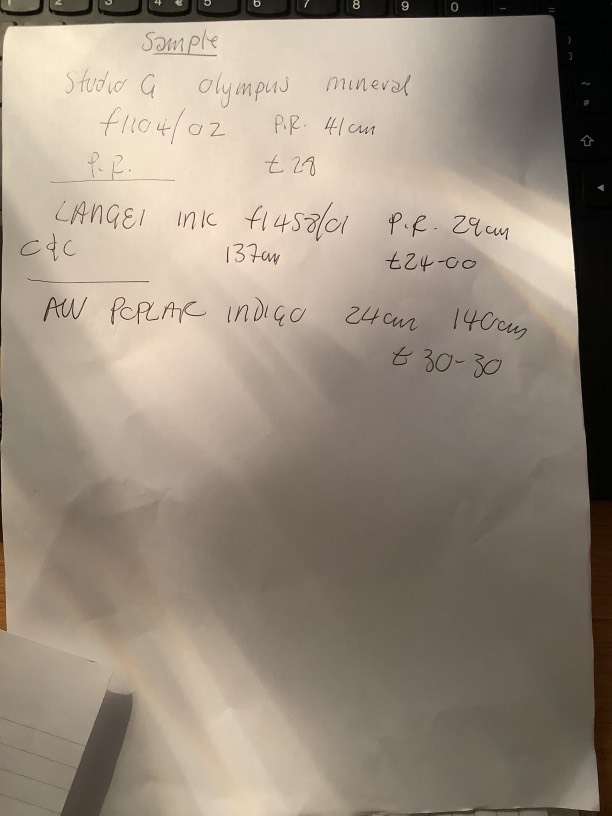 Sample
Studio G Olympus mineral
f1104/02 P.R. 41cm
P.R. £28
LANGEI INK f1458/01 P.R. 29cm
C&C 137cm £24-00
AW POPLAR INDIGO 24cm 140cm
£30-30